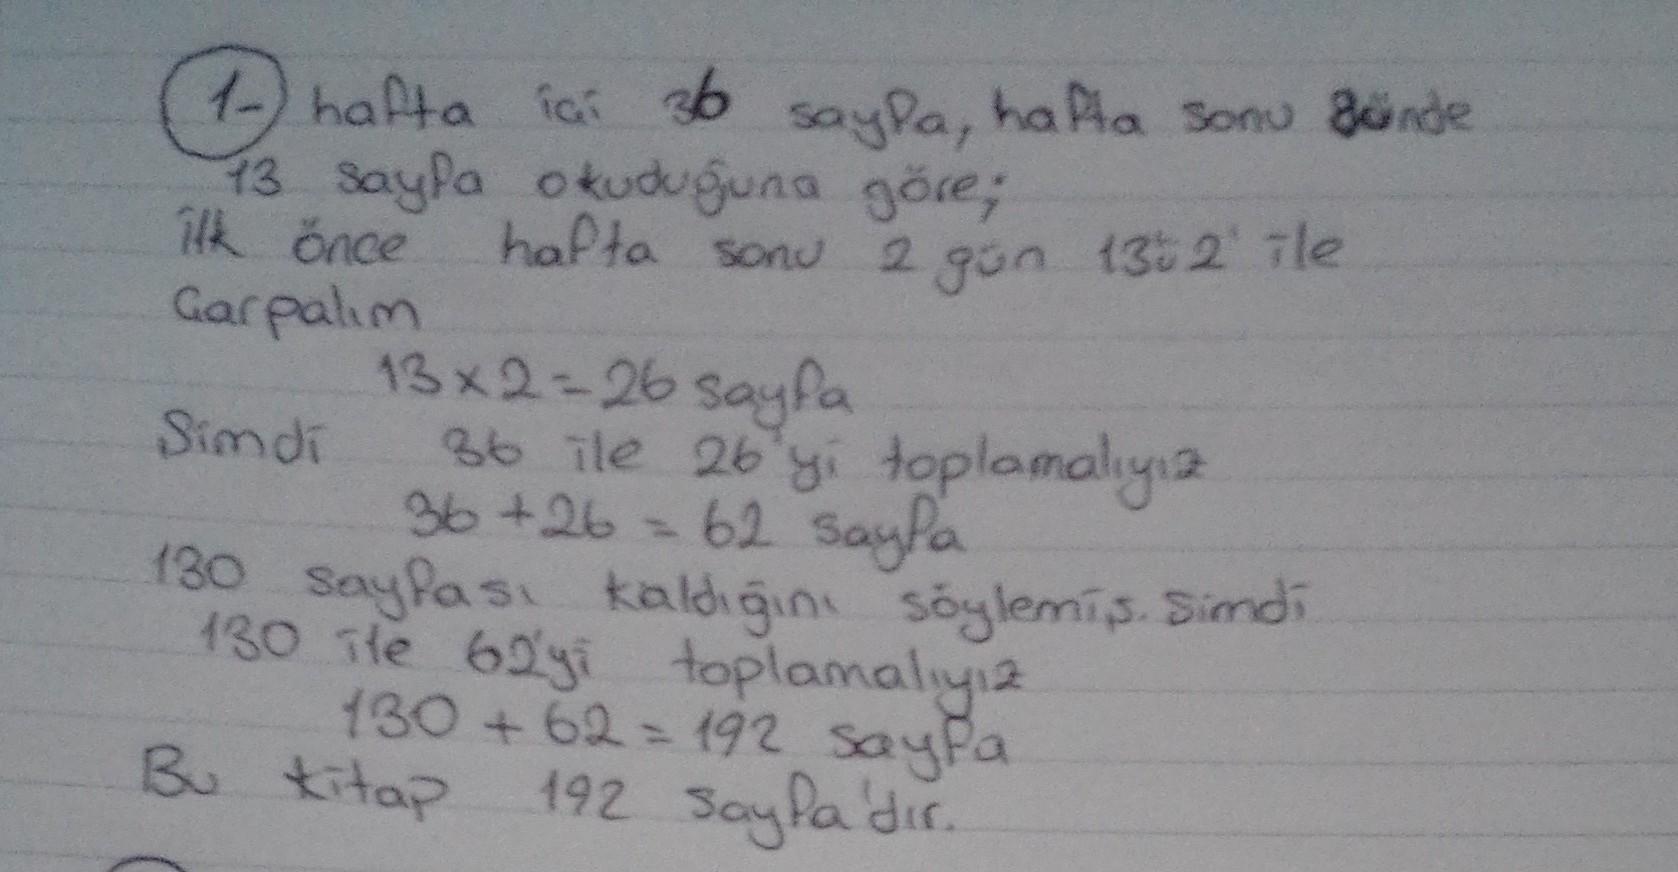 1- hafta içi 36 sayfa, hafta sonu günde
13 sayfa okuduğuna göre;
ilk önce hafta sonu 2 gün 13'ü 2 ile
Çarpalım
13 x 2 = 26 sayfa
Simdi 36 ile 26'yi toplamalıyız
36 + 26 = 62 sayfa
130 sayfası kaldığını söylemiş. Simdi
130 ile 62'yi toplamalıyız
130 + 62 = 192 sayfa
Bu kitap 192 sayfa'dır.